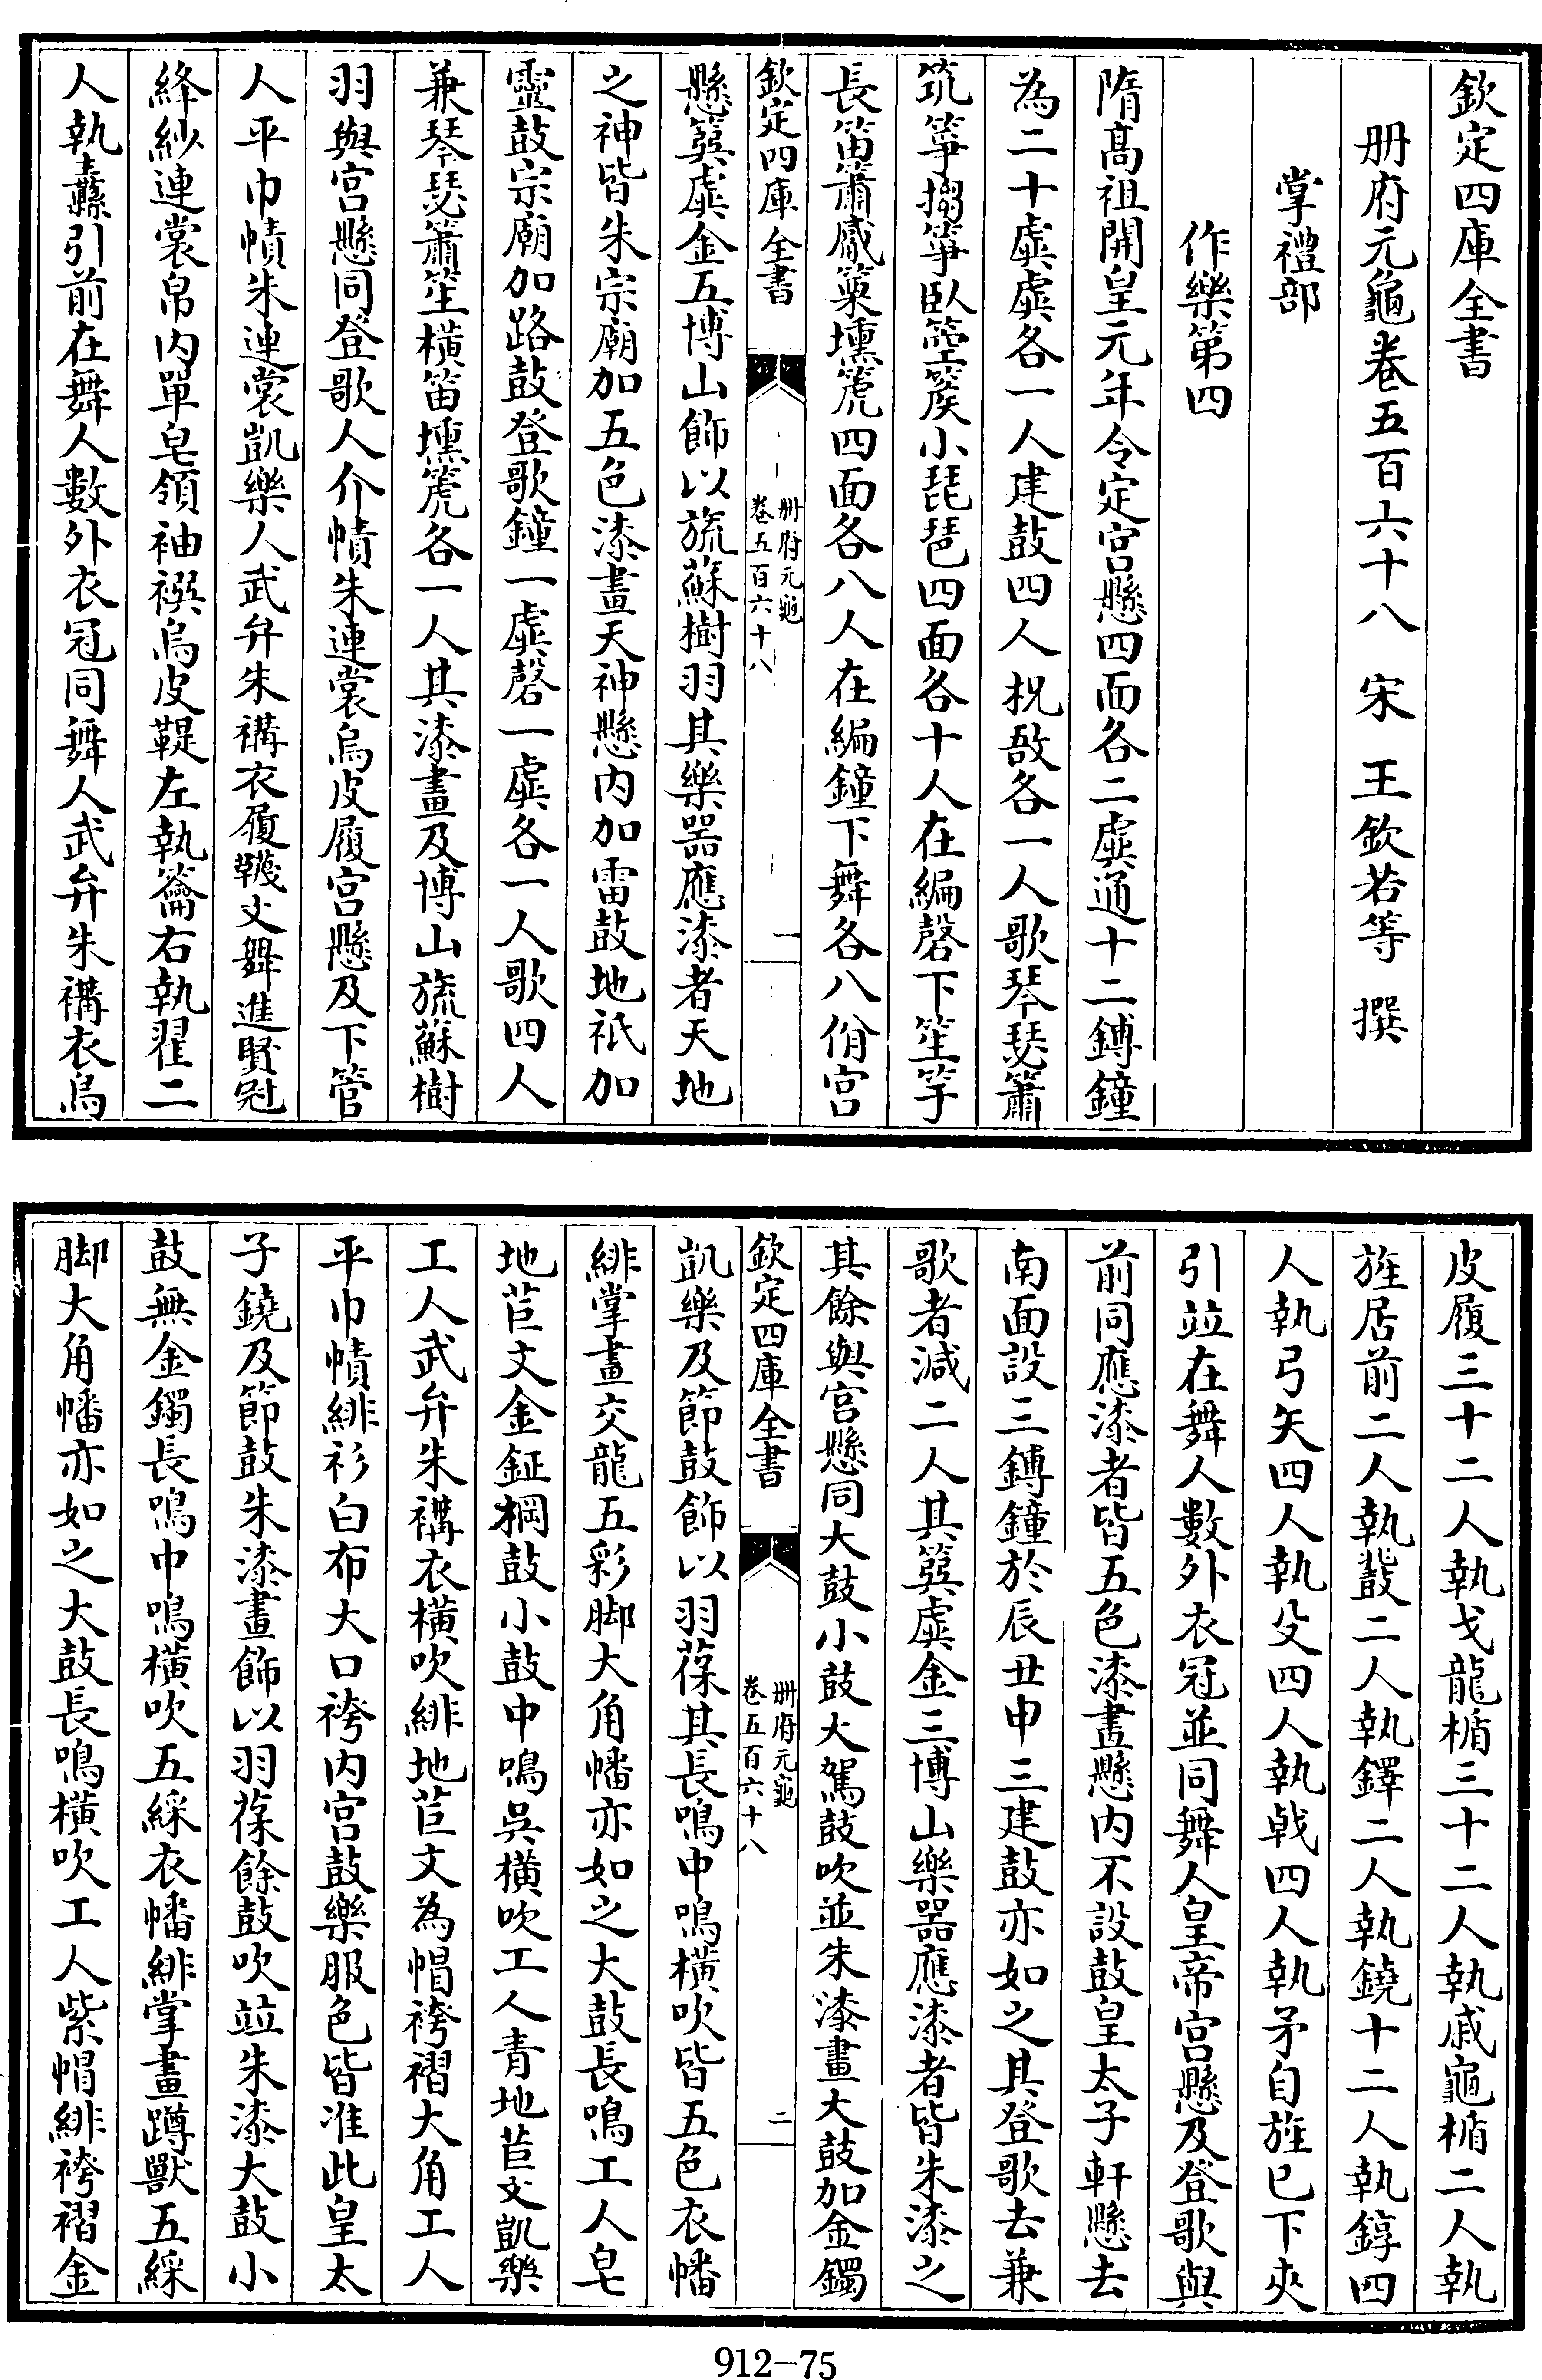 欽定四庫全書
册府元龜卷五百六十八　宋　王欽若等　撰
掌禮部
作樂第四
隋髙祖開皇元年令定宫懸四面各二虡通十二鎛鐘
為二十虡虡各一人建鼓四人柷敔各一人歌琴瑟簫
筑筝搊筝臥箜篌小琵琶四面各十人在編磬下笙竽
長笛簫觱篥壎箎四面各八人在編鐘下舞各八佾宫
欽定四庫全書
册府元龜
卷五百六十八
一
懸簨虡金五博山飾以旒蘇樹羽其樂器應漆者天地
之神皆朱宗廟加五色漆畫天神懸内加雷鼓地祇加
靈鼓宗廟加路鼓登歌鐘一虡磬一虡各一人歌四人
兼琴瑟簫笙橫笛壎箎各一人其漆畫及博山旒蘇樹
羽與宫懸同登歌人介幘朱連裳烏皮履宫懸及下管
人平巾幘朱連裳凱樂人武弁朱褠衣履韈文舞進賢冠
絳紗連裳帛内單皂領袖襈烏皮鞮左執籥右執翟二
人執纛引前在舞人數外衣冠同舞人武弁朱褠衣烏
皮履三十二人執戈龍楯三十二人執戚龜楯二人執
旌居前二人執鼗二人執鐸二人執鐃十二人執錞四
人執弓矢四人執殳四人執戟四人執矛自旌已下夾
引竝在舞人數外衣冠並同舞人皇帝宫懸及登歌與
前同應漆者皆五色漆畫懸内不設鼓皇太子軒懸去
南面設三鎛鐘於辰丑申三建鼓亦如之其登歌去兼
歌者減二人其簨虡金三博山樂器應漆者皆朱漆之
其餘與宫懸同大鼓小鼓大駕鼓吹並朱漆畫大鼓加金鐲
欽定四庫全書
册府元龜
卷五百六十八
二
凱樂及節鼓飾以羽葆其長鳴中鳴橫吹皆五色衣幡
緋掌畫交龍五彩脚大角幡亦如之大鼓長鳴工人皂
地苣文金鉦棡鼓小鼓中鳴吳橫吹工人青地苣文凱樂
工人武弁朱褠衣橫吹緋地苣文為帽袴褶大角工人
平巾幘緋衫白布大口袴内宫鼓樂服色皆准此皇太
子鐃及節鼓朱漆畫飾以羽葆餘鼓吹竝朱漆大鼓小
鼓無金鐲長鳴中鳴橫吹五綵衣幡緋掌畫蹲獸五綵
脚大角幡亦如之大鼓長鳴橫吹工人紫帽緋袴褶金
912-75